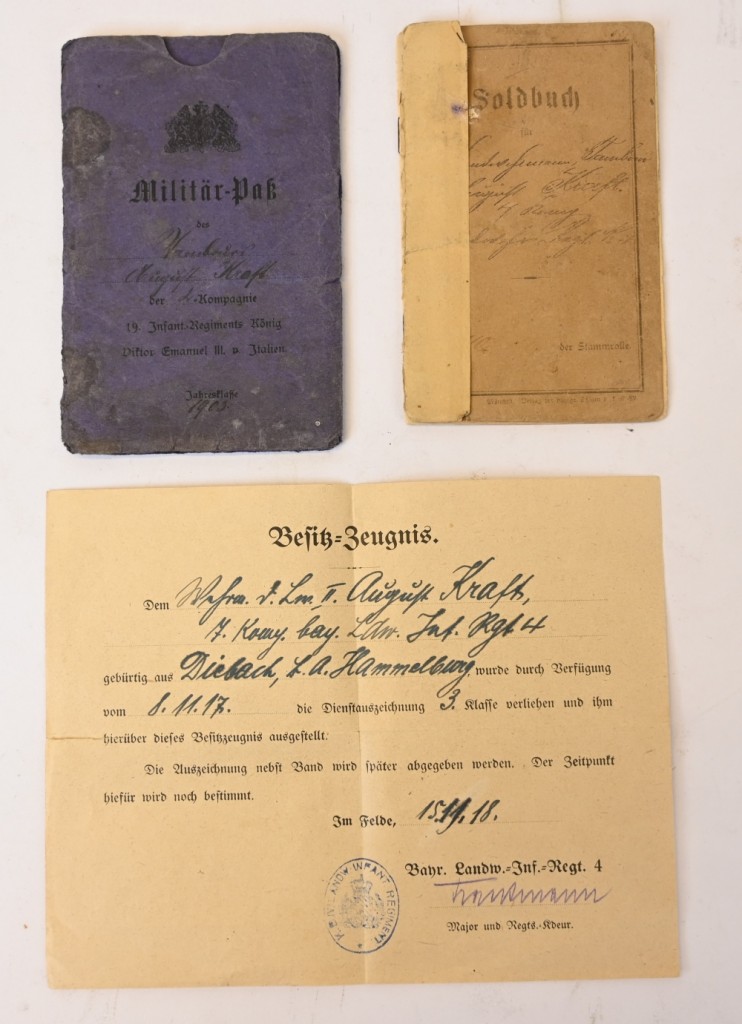 Militär-Paß
des
Tambour
August Kraft
der 4. Kompagnie
19. Infant.-Regiments König
Viktor Emanuel III. v. Italien.
Jahresklaße
1903
Soldbuch
für
August Kraft
der Stammrolle
Besitz-Zeugnis.
Dem Wehrm. d. Lw. II. August Kraft,
7. Komp. bay. Ldw. Inf. Rgt 4
gebürtig aus Diebach, b. A. Hammelburg wurde durch Verfügung
vom 8.11.17. die Dienstauszeichnung 3. Klasse verliehen und ihm
hierüber dieses Besitzzeugnis ausgestellt.
Die Auszeichnung nebst Band wird später abgegeben werden. Der Zeitpunkt
hiefür wird noch bestimmt.
Im Felde, 18.
Bayr. Landw.-Inf.-Regt. 4
Major und Regts.-Kdeur.
LANDW. INFANT. REGIMENT